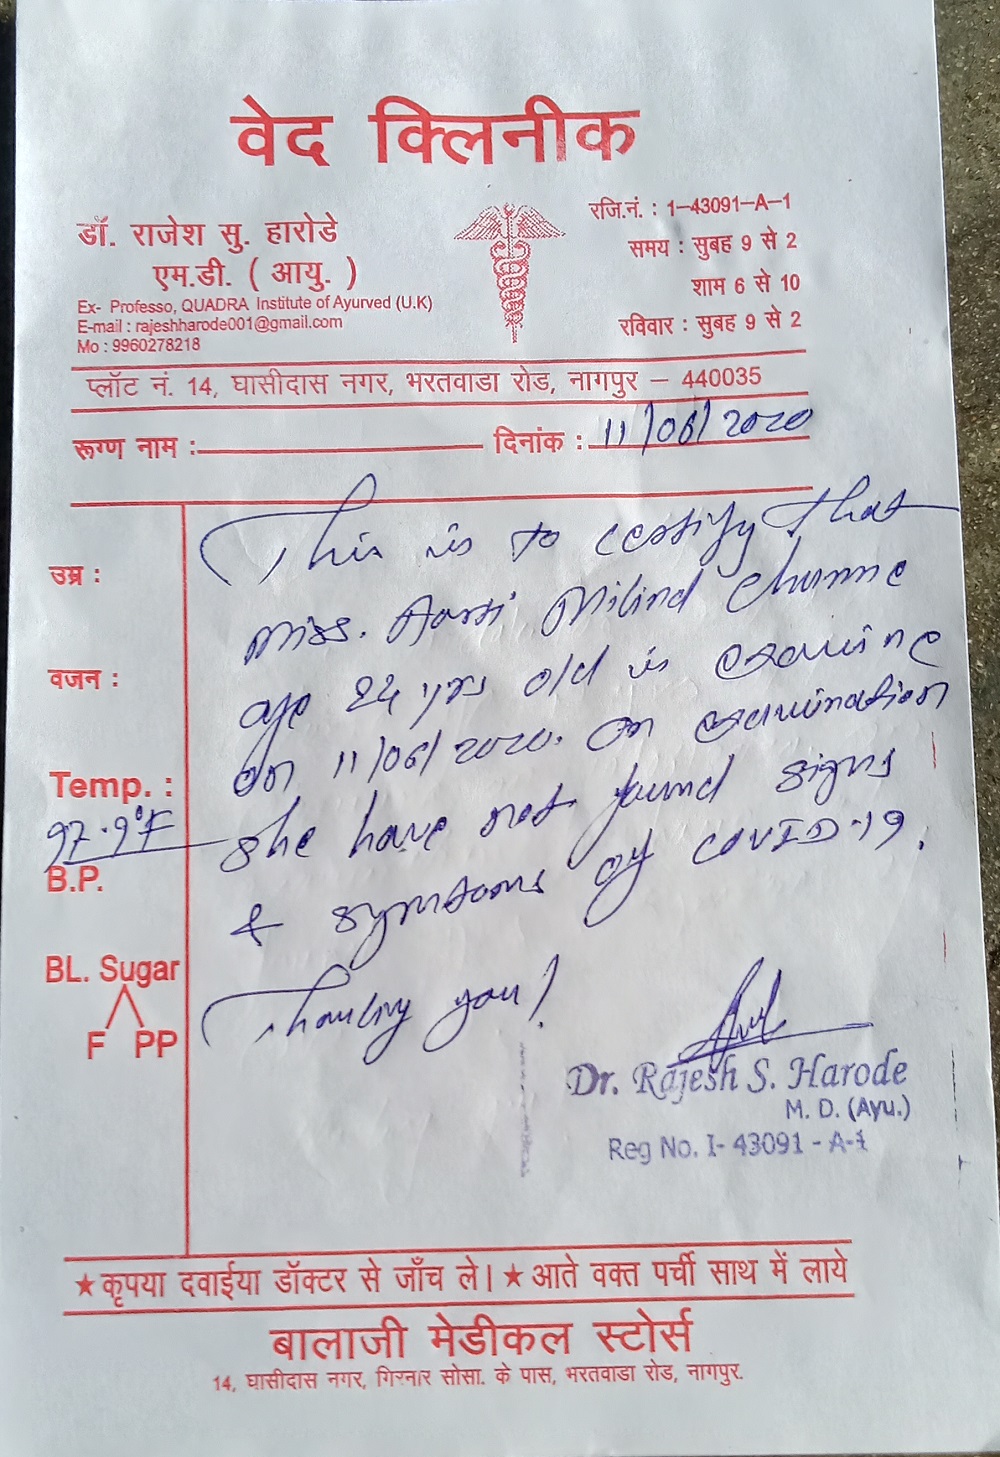 वेद क्लिनीक
डॉ. राजेश सु. हारोडे
एम.डी. ( आयु. )
Ex- Professo, QUADRA Institute of Ayurved (U.K)
E-mail : rajeshharode001@gmail.com
Mo : 9960278218
रजि.नं. : 1-43091-A-1
समय : सुबह 9 से 2
शाम 6 से 10
रविवार : सुबह 9 से 2
प्लॉट नं. 14, घासीदास नगर, भरतवाडा रोड, नागपुर – 440035
रूग्ण नाम : दिनांक : 11/06/2020
This is to certify that
उम्र :
Miss. Aarti Milind
वजन :
age 24 yrs old is examine
on 11/06/2020. on examination
Temp. :
97.9°F
she have not found signs
B.P.
& symtoms of COVID-19.
BL. Sugar
F PP
Thanking you!
Dr. Rajesh S. Harode
M. D. (Ayu.)
Reg No. I- 43091 - A-1
★ कृपया दवाईया डॉक्टर से जाँच ले। ★ आते वक्त पर्ची साथ में लाये
बालाजी मेडीकल स्टोर्स
14, घासीदास नगर, गिरनार सोसा. के पास, भरतवाडा रोड, नागपुर.